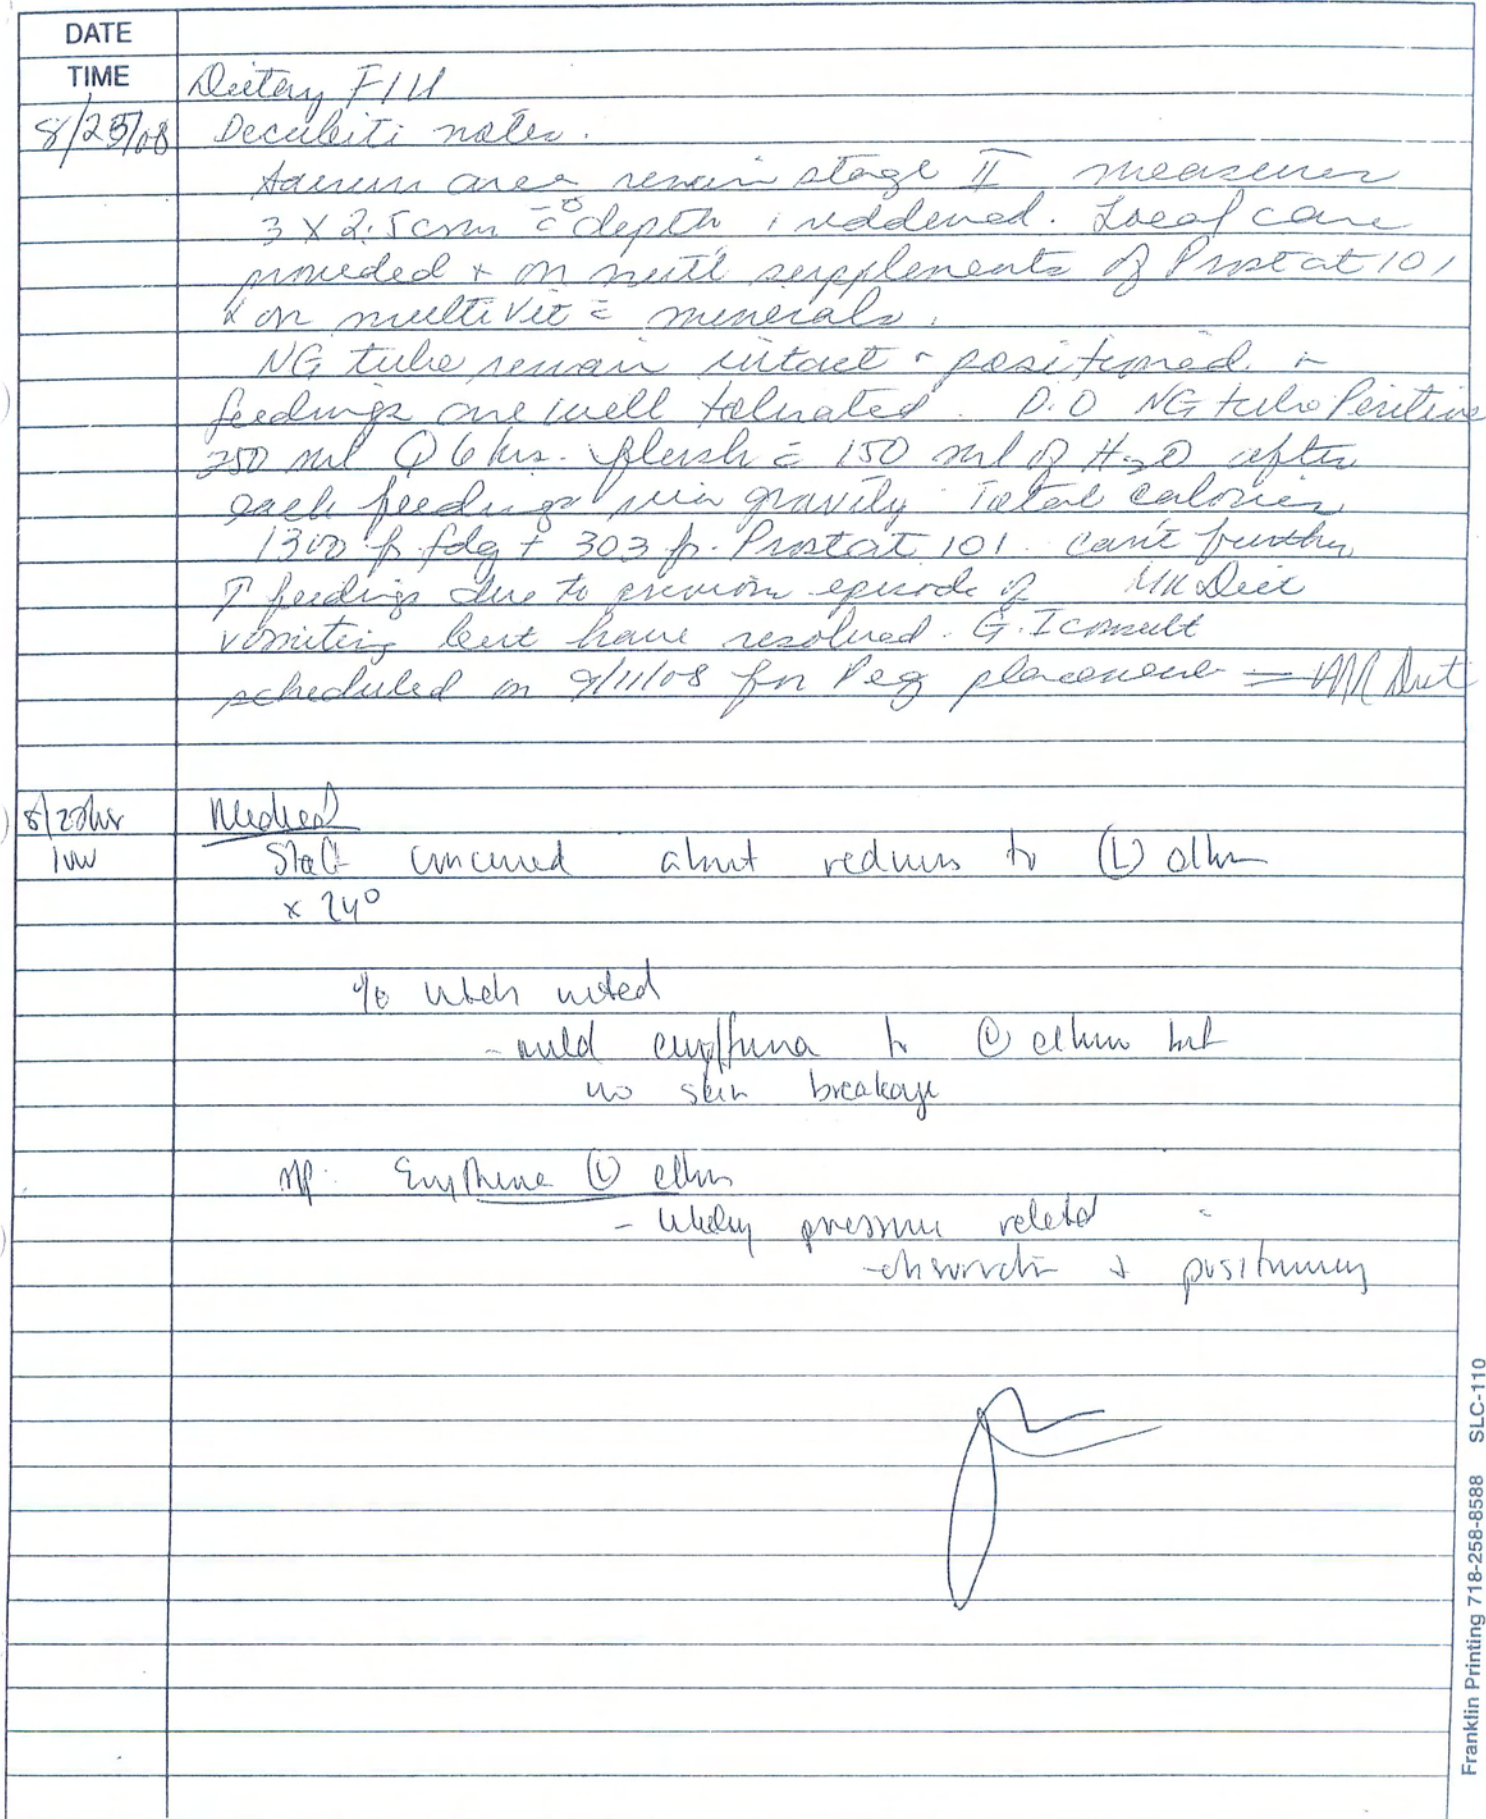 DATE
TIME
Dietary F/U
8/25/08 Decubiti notes.
Sacrum area remain stage II measures
3 X 2.5cm c̄ 0 depth, reddened. Local care
provided + on nutl supplements of Prostat 101
& on multivit c̄ minerals.
NG tube remain intact + positioned +
feedings are well tolerated. P.O NG tube
350 ml Q 6 hrs. flush c̄ 150 ml of H2O after
each feedings via gravity. Total calories
1300 p. fdg + 303 p. Prostat 101. can't further
↑ feedings due to previous episode of
vomiting but have resolved. G.I consult
scheduled on 9/11/08 for Peg placement
Medical
Staff concerned about redness to (L)
x 24°
noted
- mild erythema to (L) but
no skin breakage
Erythema (L)
- likely pressure related
- observation + positioning
Franklin Printing 718-258-8588 SLC-110